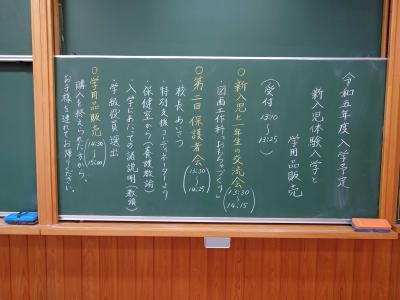 令和五年度入学予定
新入児体験入学と
学用品販売
(受付 13:10〜13:25)
○新入児と一年生の交流会(13:30〜14:15)
・図画工作科「おもちゃづくり」
○第二回保護者会(13:30〜14:25)
・校長あいさつ
・特別支援コーディネーターより
・保健室から(養護教諭)
・入学にあたっての諸説明(教頭)
・学級役員選出
○学用品販売(14:30〜15:00)
購入を終えられた方から、
お子様を連れてお帰りください。